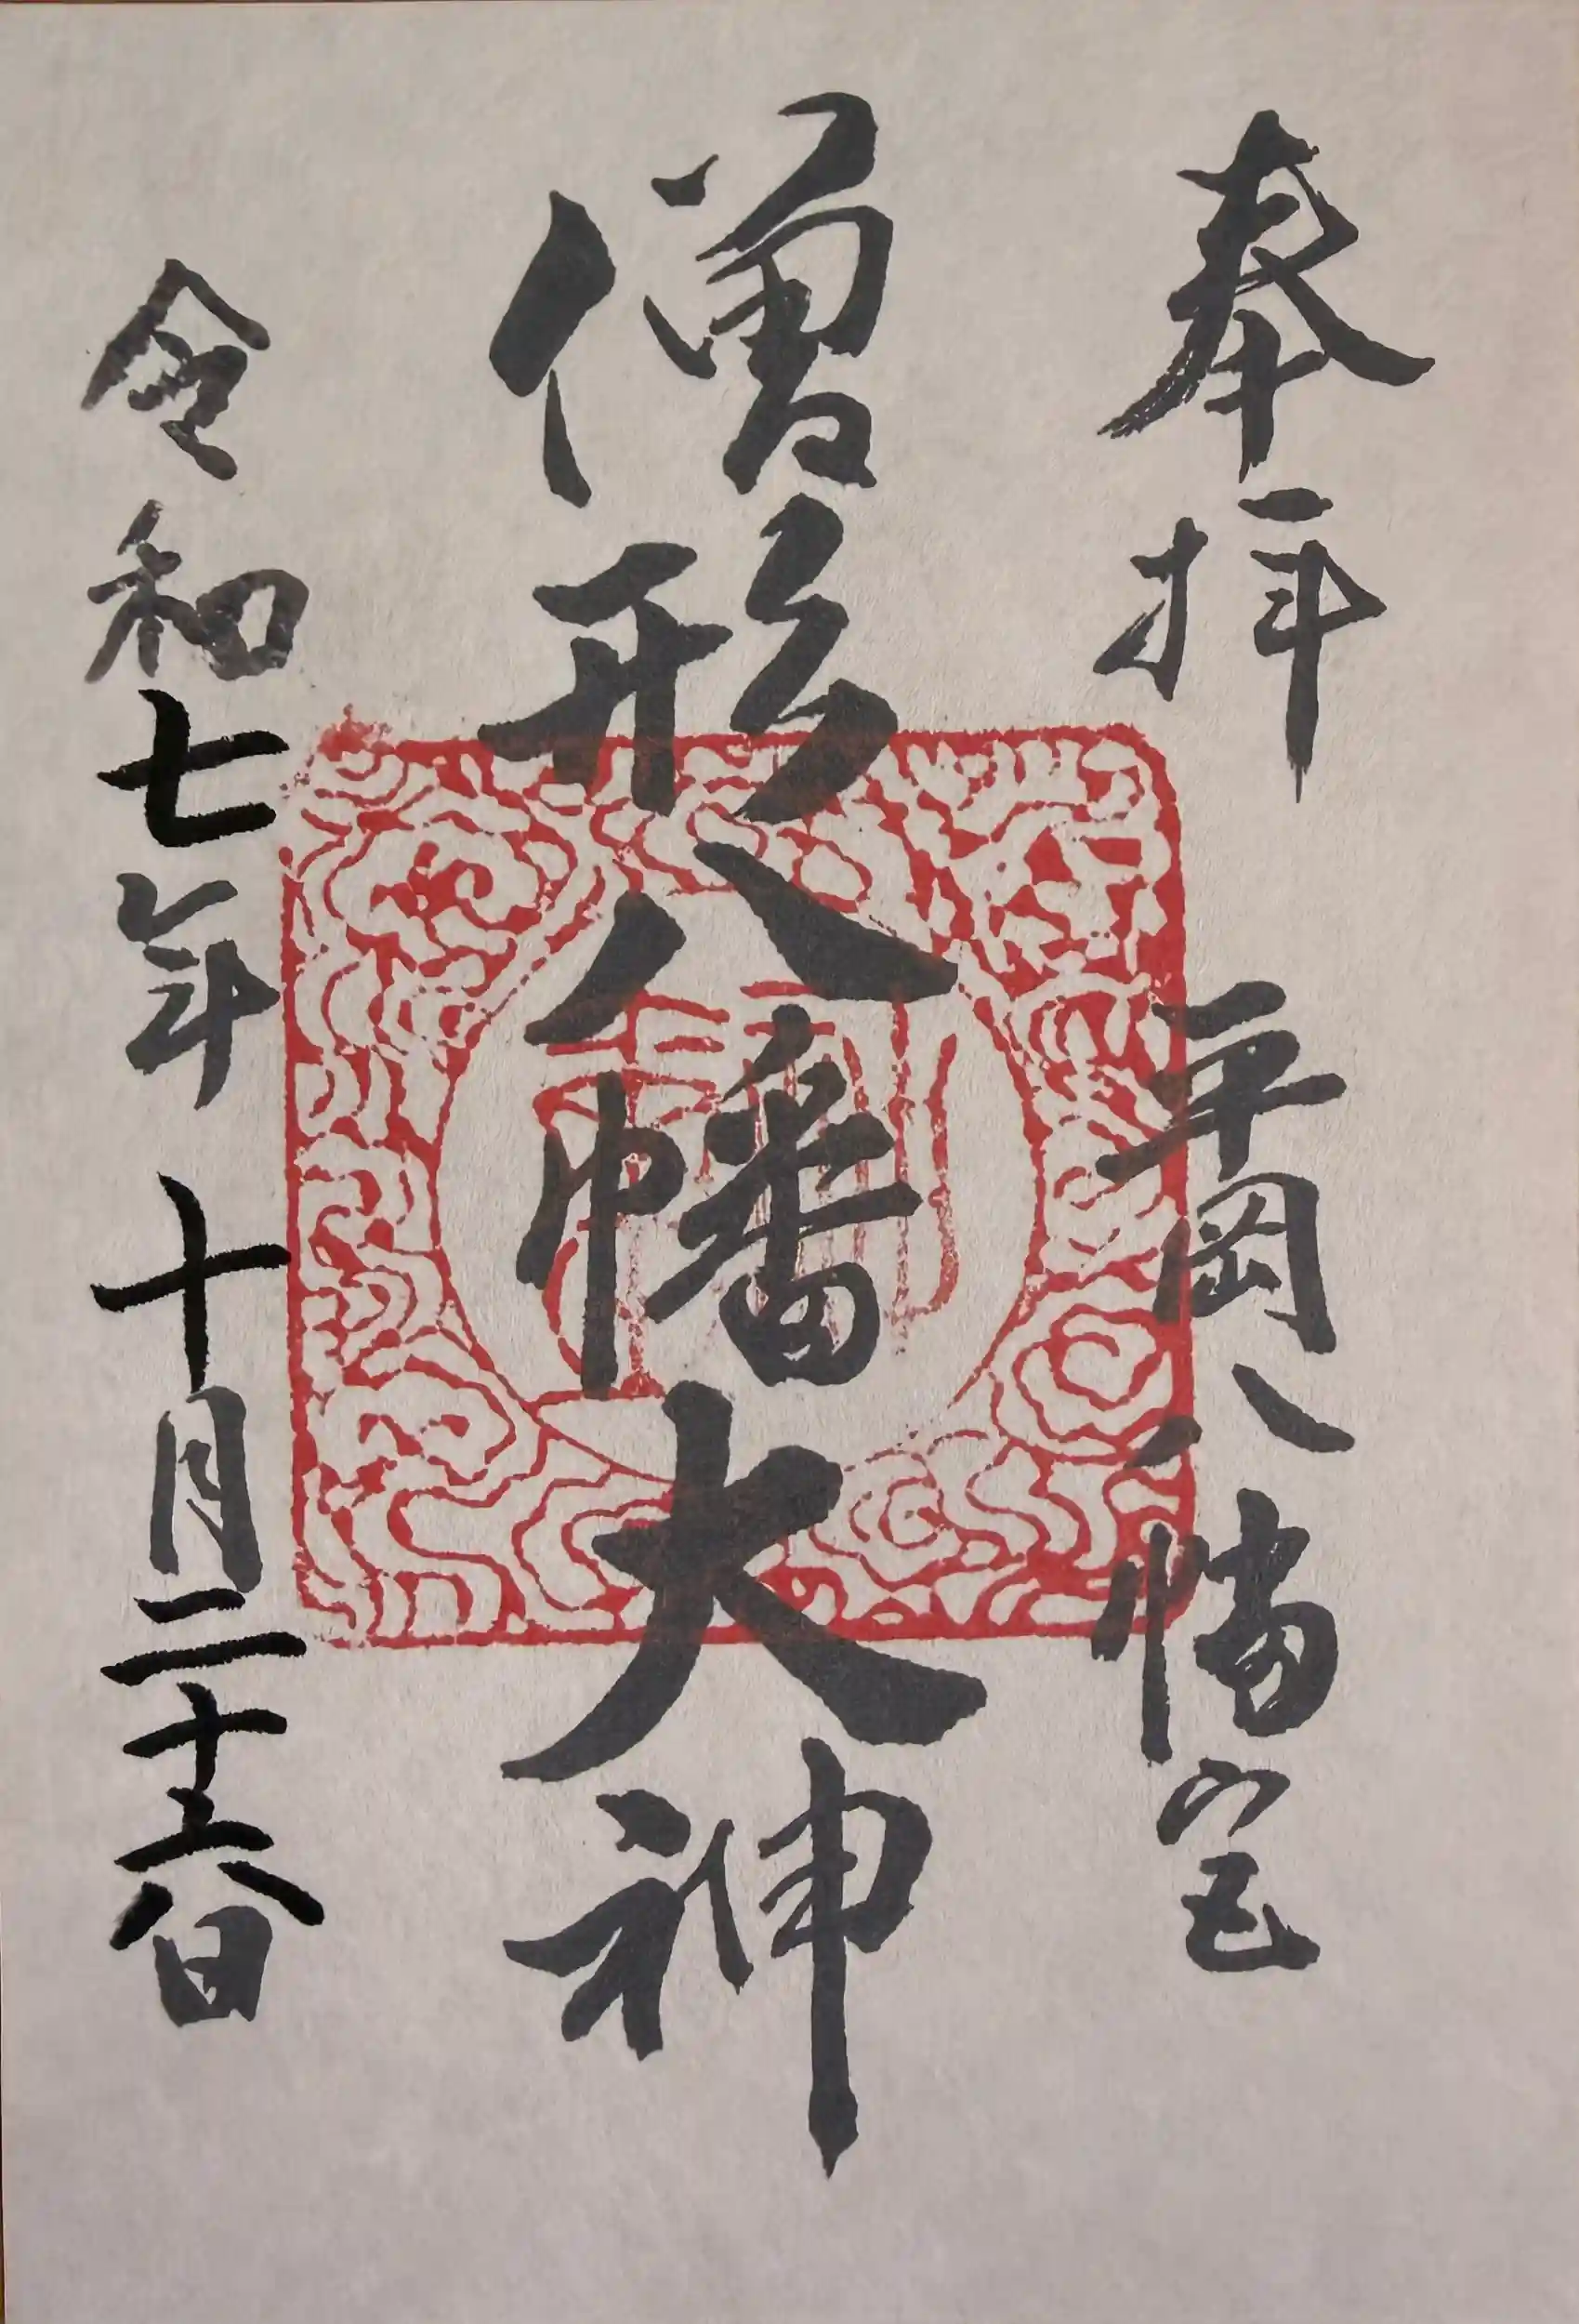 奉拝 平岡八幡宮
僧形八幡大神
令和七年 十月二十六日